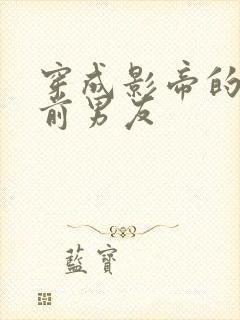 穿成影帝的
前男友
藍寶